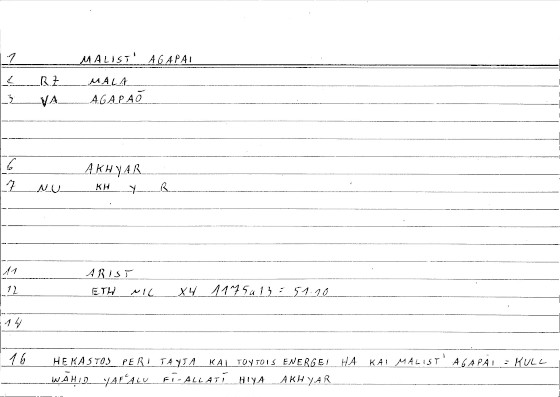 1 MALIST' AGAPAI
2 RZ MALA
3 VA AGAPAŌ
6 AKHYAR
7 NU KH Y R
11 ARIST
12 ETH NIC X4 1175a13 = 51.10
14
16 HEKASTOS PERI TAYTA KAI TOYTOIS ENERGEI HA KAI MALIST' AGAPAI = KULL
WĀḤID YAFʿALU FĪ-ALLATĪ HIYA AKHYAR